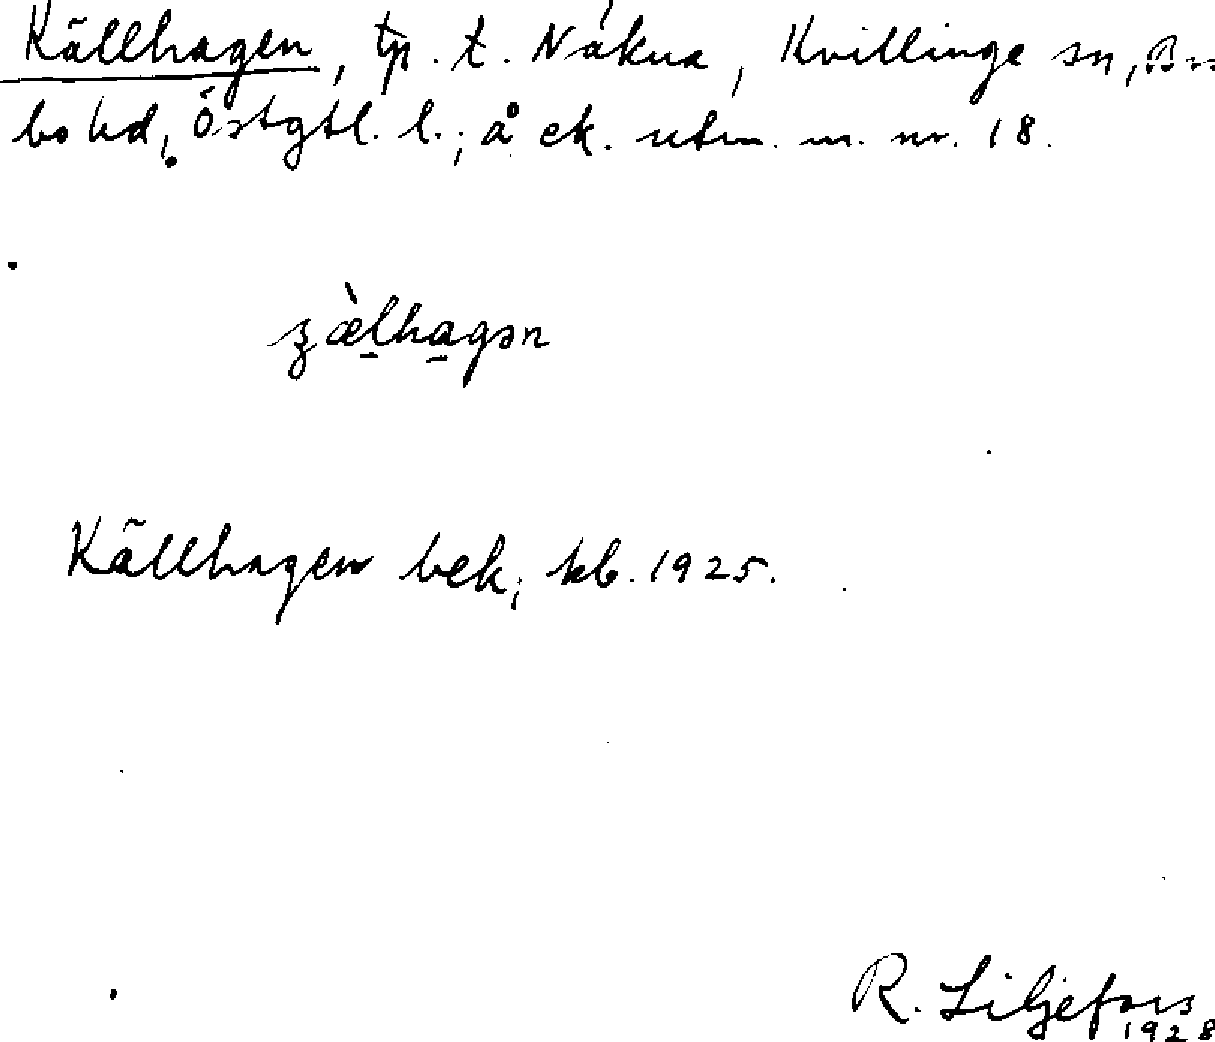 Källhagen, tp. t. Nákna, Kvillinge sn, Brå
bo hd, Östgtl. l.; å ek. utm. m. nr. 18.
ʒæ̀lhagən
Källhagen bek, kb. 1925.
R. Liljefors
1928